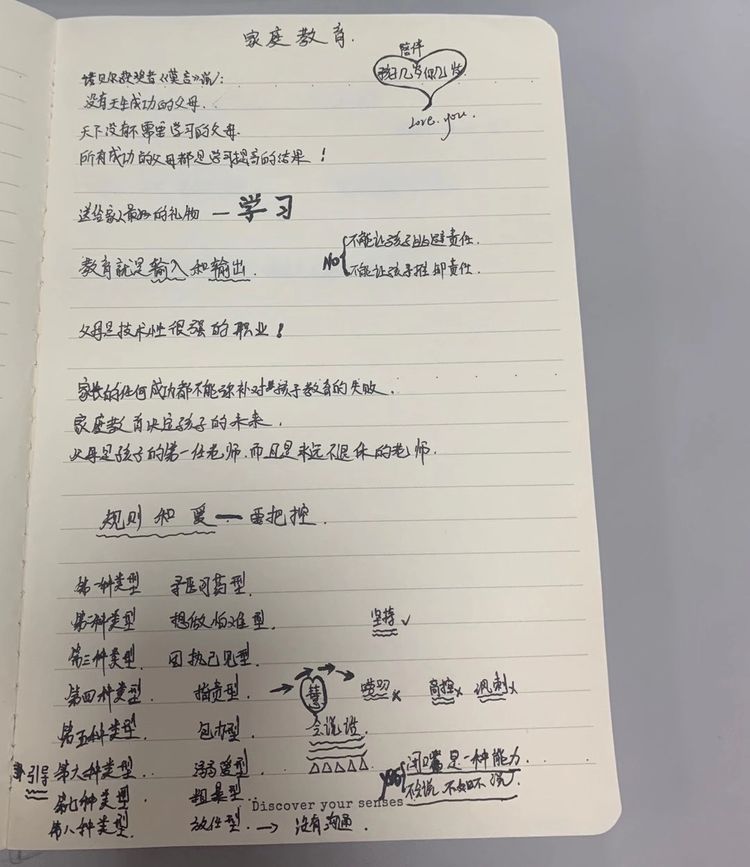 家庭教育.
陪伴
孩子几岁你几岁
Love you.
诺贝尔获奖者《莫言》说:
没有天生成功的父母.
天下没有不需要学习的父母.
所有成功的父母都是学习提高的结果!
送给家人最好的礼物 — 学习
教育就是输入和输出.
NO
不能让孩子逃避责任.
不能让孩子推卸责任.
父母是技术性很强的职业!
家长的任何成功都不能弥补对孩子教育的失败.
家庭教育决定孩子的未来.
父母是孩子的第一任老师.而且是永远不退休的老师.
规则和爱 — 要把控.
第一种类型 寻医问药型.
第二种类型 想做怕难型. 坚持✓
第三种类型. 固执己见型.
第四种类型. 指责型. → 唠叨× 高控× 讽刺×
第五种类型. 包办型. 会说话.
引导 第六种类型. 溺爱型. △△△△△
闭嘴是一种能力.
不会说 不如不说了
第七种类型. 粗暴型.
Discover your senses
第八种类型. 放任型. → 没有沟通.